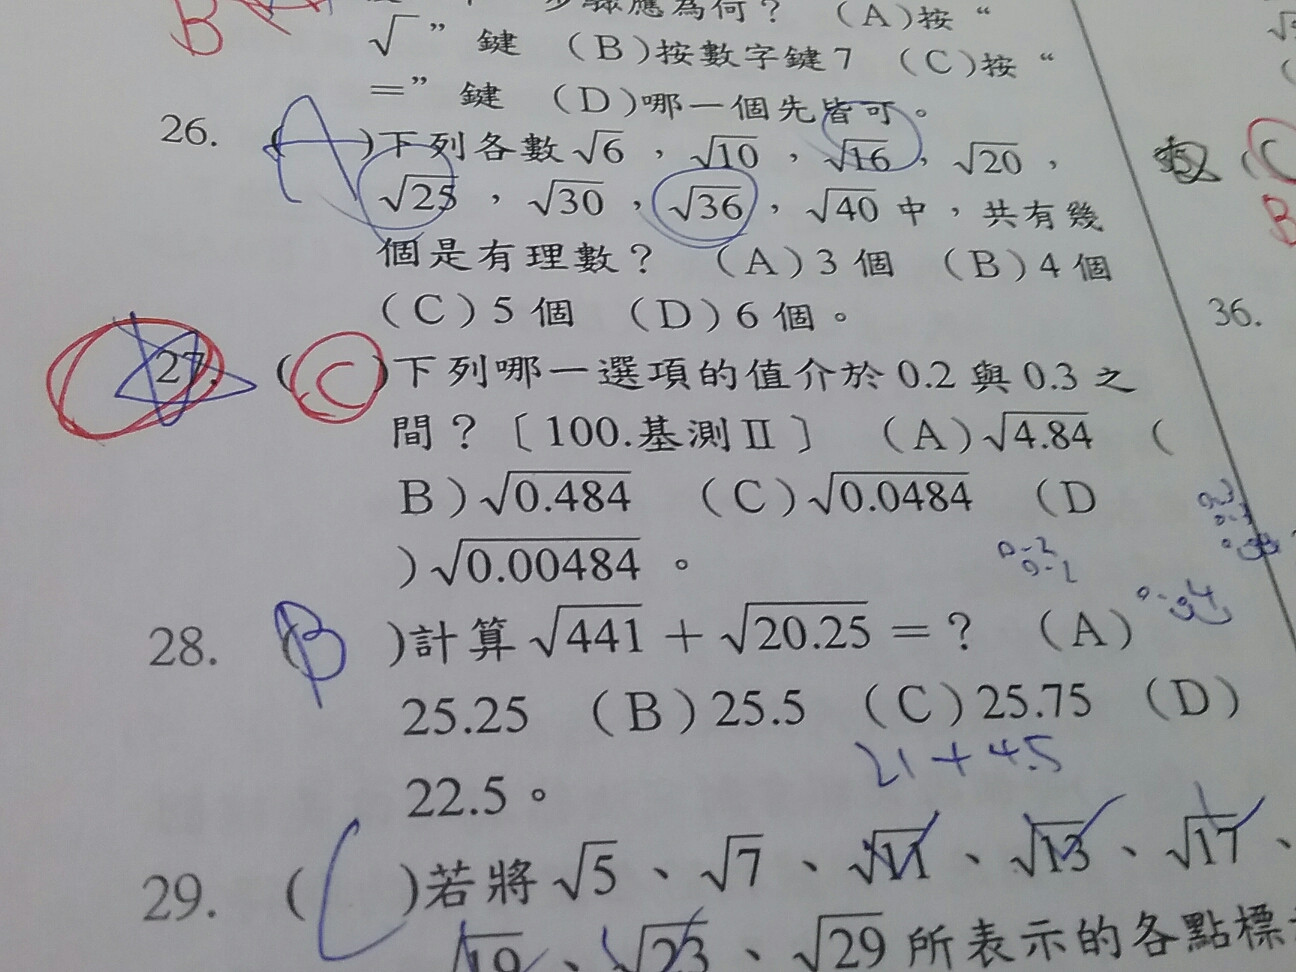 B
步驟應為何？ （A)按“
√ ” 鍵 （B)按數字鍵7 （C)按“
=” 鍵 （D)哪一個先皆可。
26. (A)下列各數√6，√10，√16，√20，
√25，√30，√36，√40中，共有幾
個是有理數？ （A)3個 （B)4個
（C)5個 （D)6個。
27. (C)下列哪一選項的值介於0.2與0.3之
間？〔100.基測Ⅱ〕 （A)√4.84 （
B)√0.484 （C)√0.0484 （D
)√0.00484。
28. (B)計算√441+√20.25=？ （A)
25.25 （B)25.5 （C)25.75 （D)
21+4.5
22.5。
29. (C)若將√5、√7、√11、√13、√17、
√19、√23、√29所表示的各點標
C
B
36.